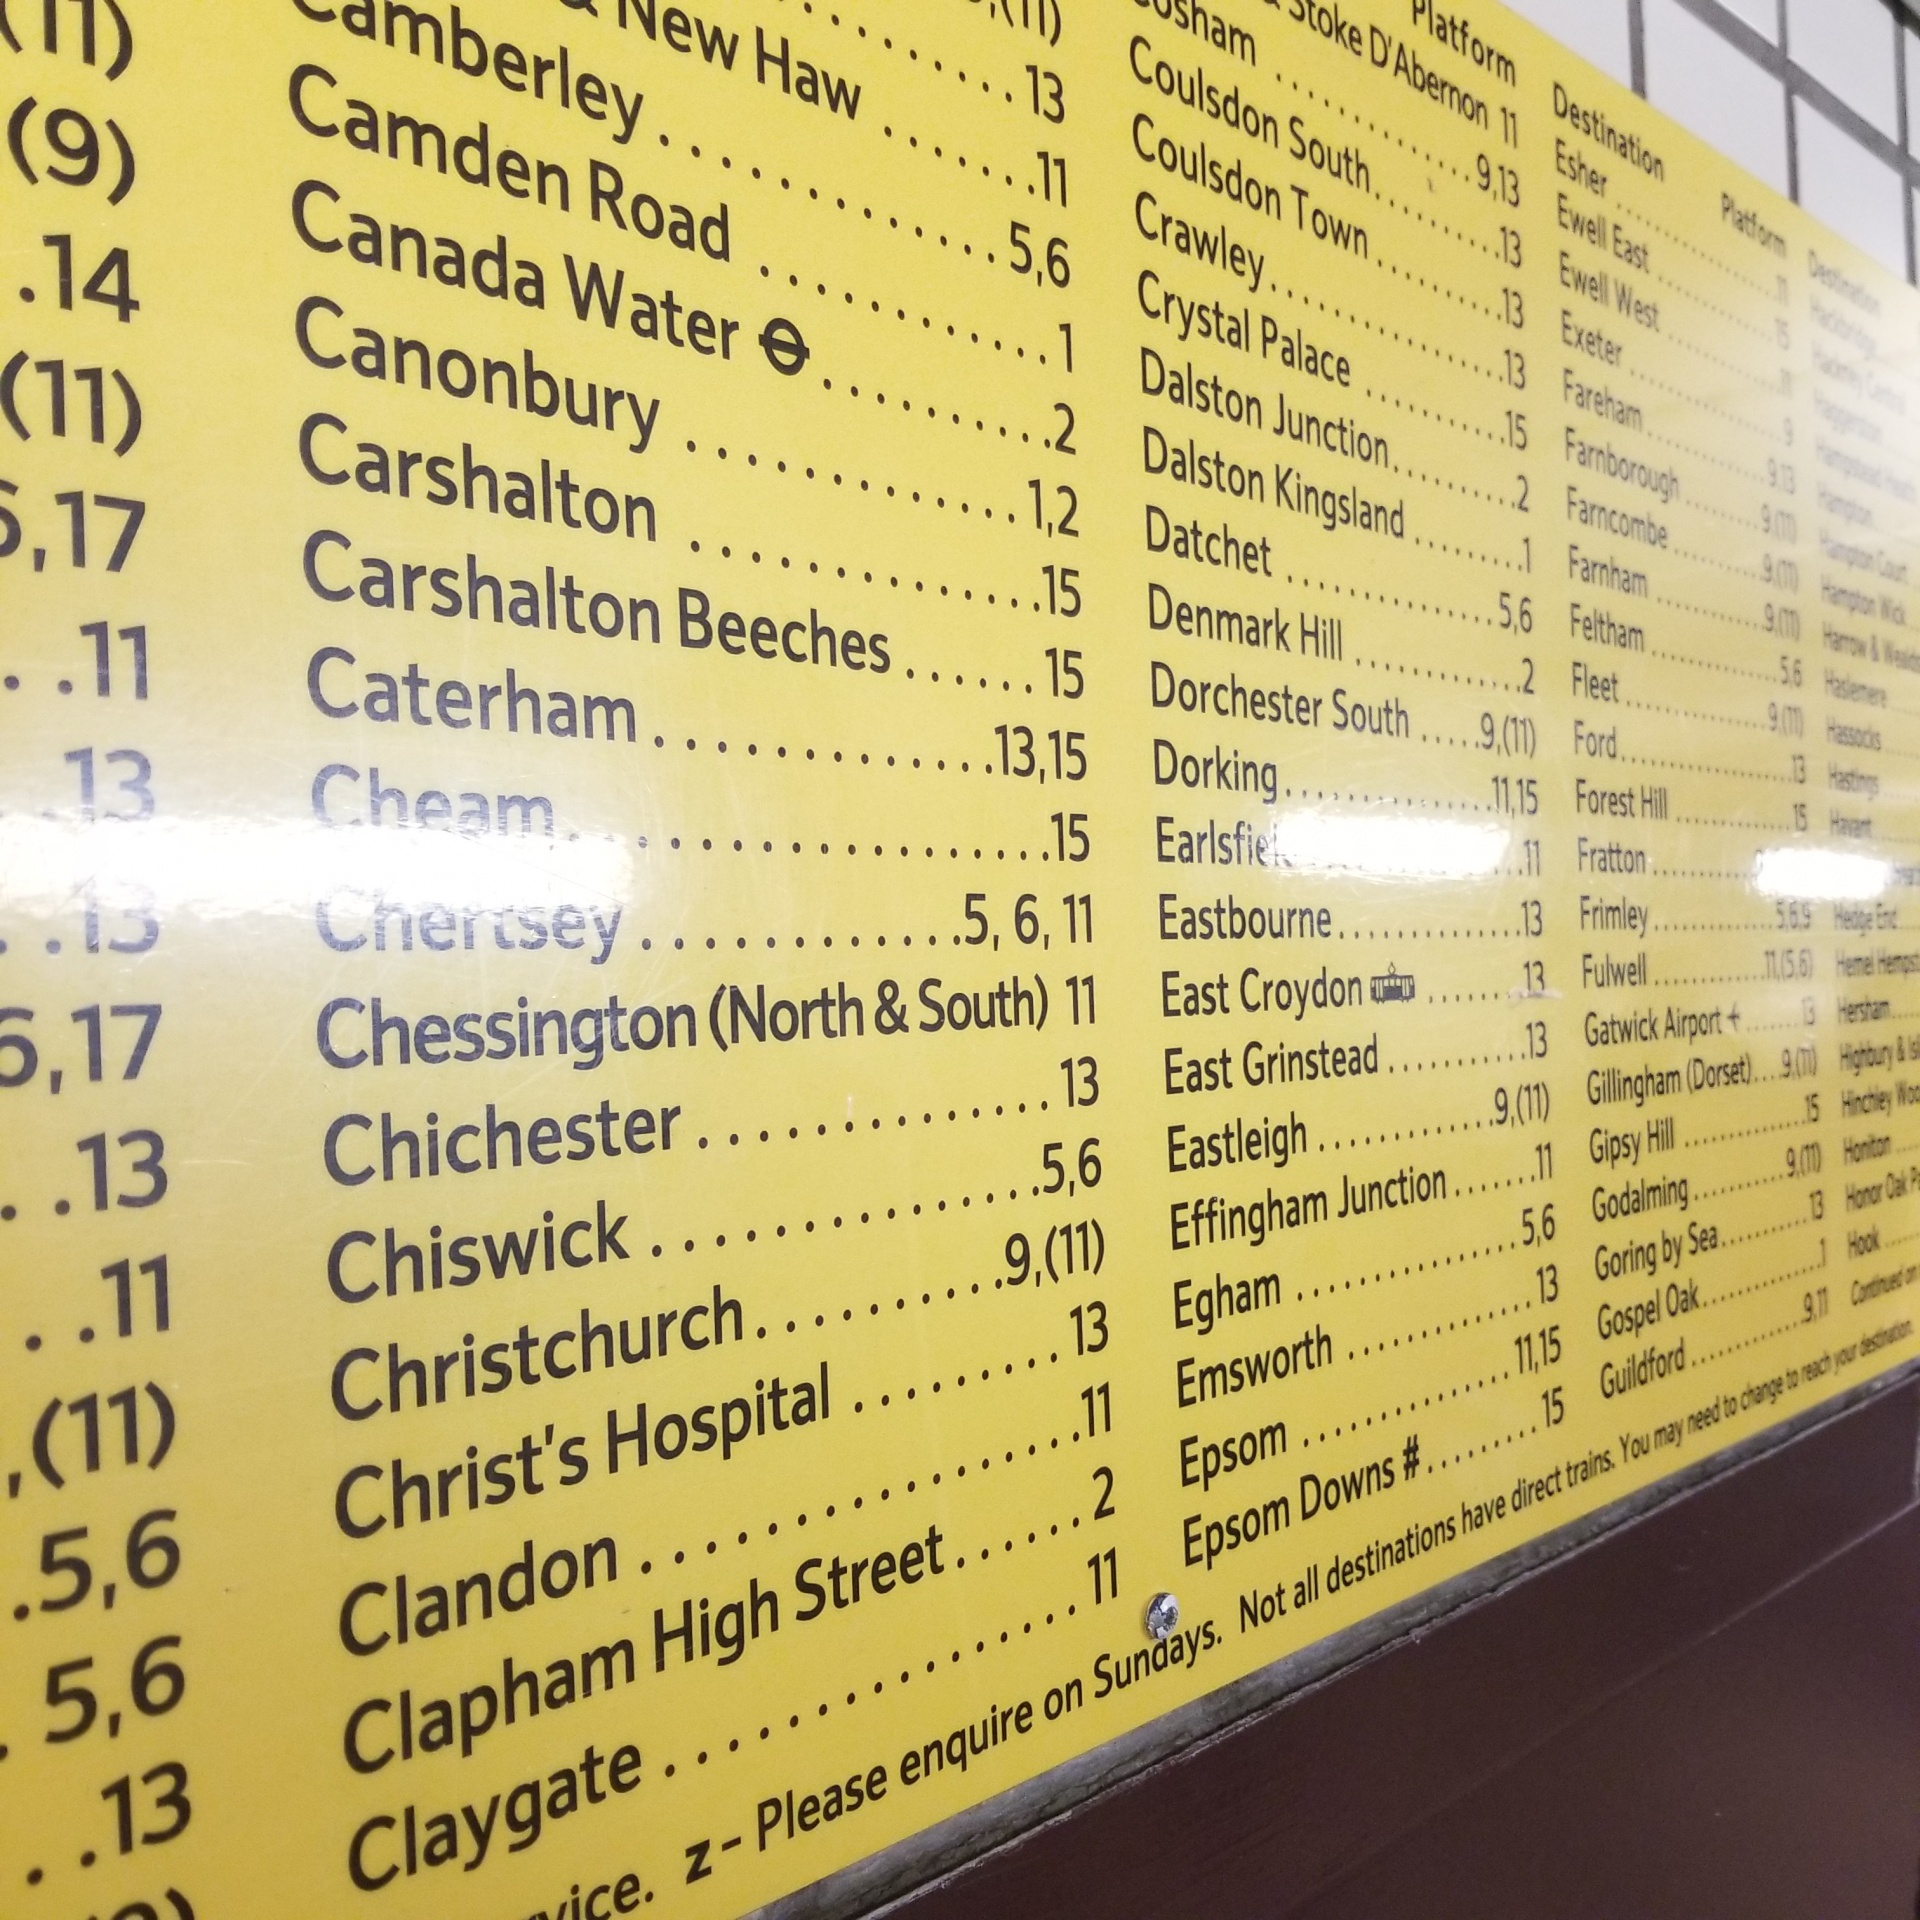 (11)
(9)
.14
(11)
,17
. .11
.13
. .13
6,17
. .13
. .11
,(11)
.5,6
. 5,6
. .13
,(11)
............13
& New Haw .......11
Camberley...............5,6
Camden Road ...........1
Canada Water ..........2
Canonbury .............1,2
Carshalton .............15
Carshalton Beeches ...... 15
Caterham.............13,15
Cheam.................15
Chertsey............5, 6, 11
Chessington (North & South) 11
Chichester............. 13
Chiswick..............5,6
Christchurch.........9,(11)
Christ's Hospital ........ 13
Clandon ................11
Clapham High Street......2
Claygate ............... 11
Platform
& Stoke D'Abernon 11
Cosham ............9,13
Coulsdon South.......13
Coulsdon Town........13
Crawley..............13
Crystal Palace ........15
Dalston Junction.......2
Dalston Kingsland ......1
Datchet .............5,6
Denmark Hill ..........2
Dorchester South .....9,(11)
Dorking.............11,15
Earlsfield 11
Eastbourne............13
East Croydon .......13
East Grinstead .........13
Eastleigh ...........9,(11)
Effingham Junction.......11
Egham ..............5,6
Emsworth ............13
Epsom .............11,15
Epsom Downs #........15
Destination Platform
Esher ..............11
Ewell East ..........15
Ewell West ..........11
Exeter ..............9
Fareham ...........9,13
Farnborough ......9,(11)
Farncombe .......9,(11)
Farnham .........9,(11)
Feltham ...........5,6
Fleet ............9,(11)
Ford................13
Forest Hill ..........15
Fratton ...........
Frimley ..........5,6,9
Fulwell .........11,(5,6)
Gatwick Airport .......13
Gillingham (Dorset)....9,(11)
Gipsy Hill ............15
Godalming .........9,(11)
Goring by Sea.........13
Gospel Oak...........1
Guildford ..........9,11
Destination
Hackbridge
Hackney Central
Haggerston
Hampstead Heath
Hampton
Hampton Court
Hampton Wick
Harrow &
Haslemere
Hassocks
Hastings
Havant
Hedge End
Hemel
Hersham
Highbury &
Hinchley
Honiton
Honor Oak
Hook
Continued on
vice. z – Please enquire on Sundays. Not all destinations have direct trains. You may need to change to reach your destination.